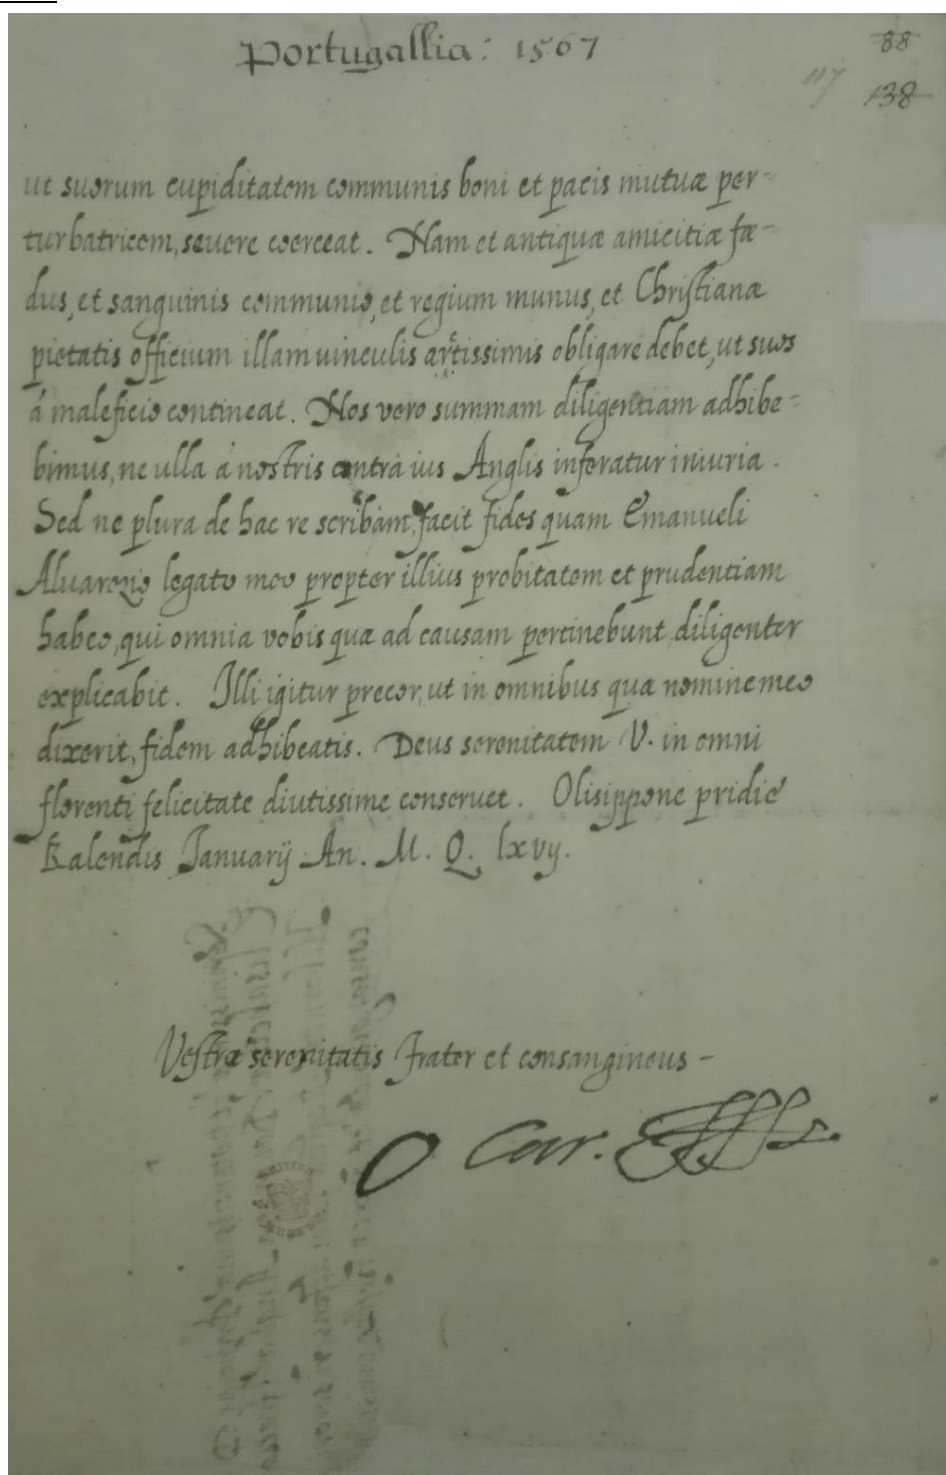 Portugallia: 1567
88
117
138
ut suorum cupiditatem communis boni et pacis mutuæ per-
turbatricem, seuere coerceat. Nam et antiquæ amicitiæ fæ-
dus, et sanguinis communio, et regium munus, et Christianæ
pietatis officium illam uinculis arctissimis obligare debet, ut suos
á maleficio contineat. Nos vero summam diligentiam adhibe-
bimus, ne ulla á nostris contra ius Anglis inferatur iniuria.
Sed ne plura de hac re scribam, facit fides quam Emanueli
Aluarezio legato meo propter illius probitatem et prudentiam
habeo, qui omnia vobis quæ ad causam pertinebunt diligenter
explicabit. Illi igitur precor, ut in omnibus quæ nomine meo
dixerit, fidem adhibeatis. Deus serenitatem V. in omni
florenti felicitate diutissime conseruet. Olisippone pridie
Kalendis Ianuarij An. M. Q. lxvij.
Vestræ serenitatis frater et consangineus -
O Car.